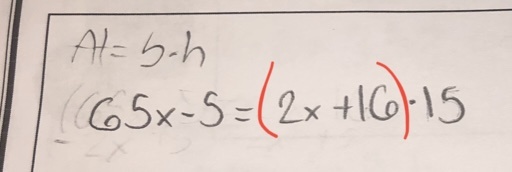 A = b·h
65x-5=(2x+16)·15